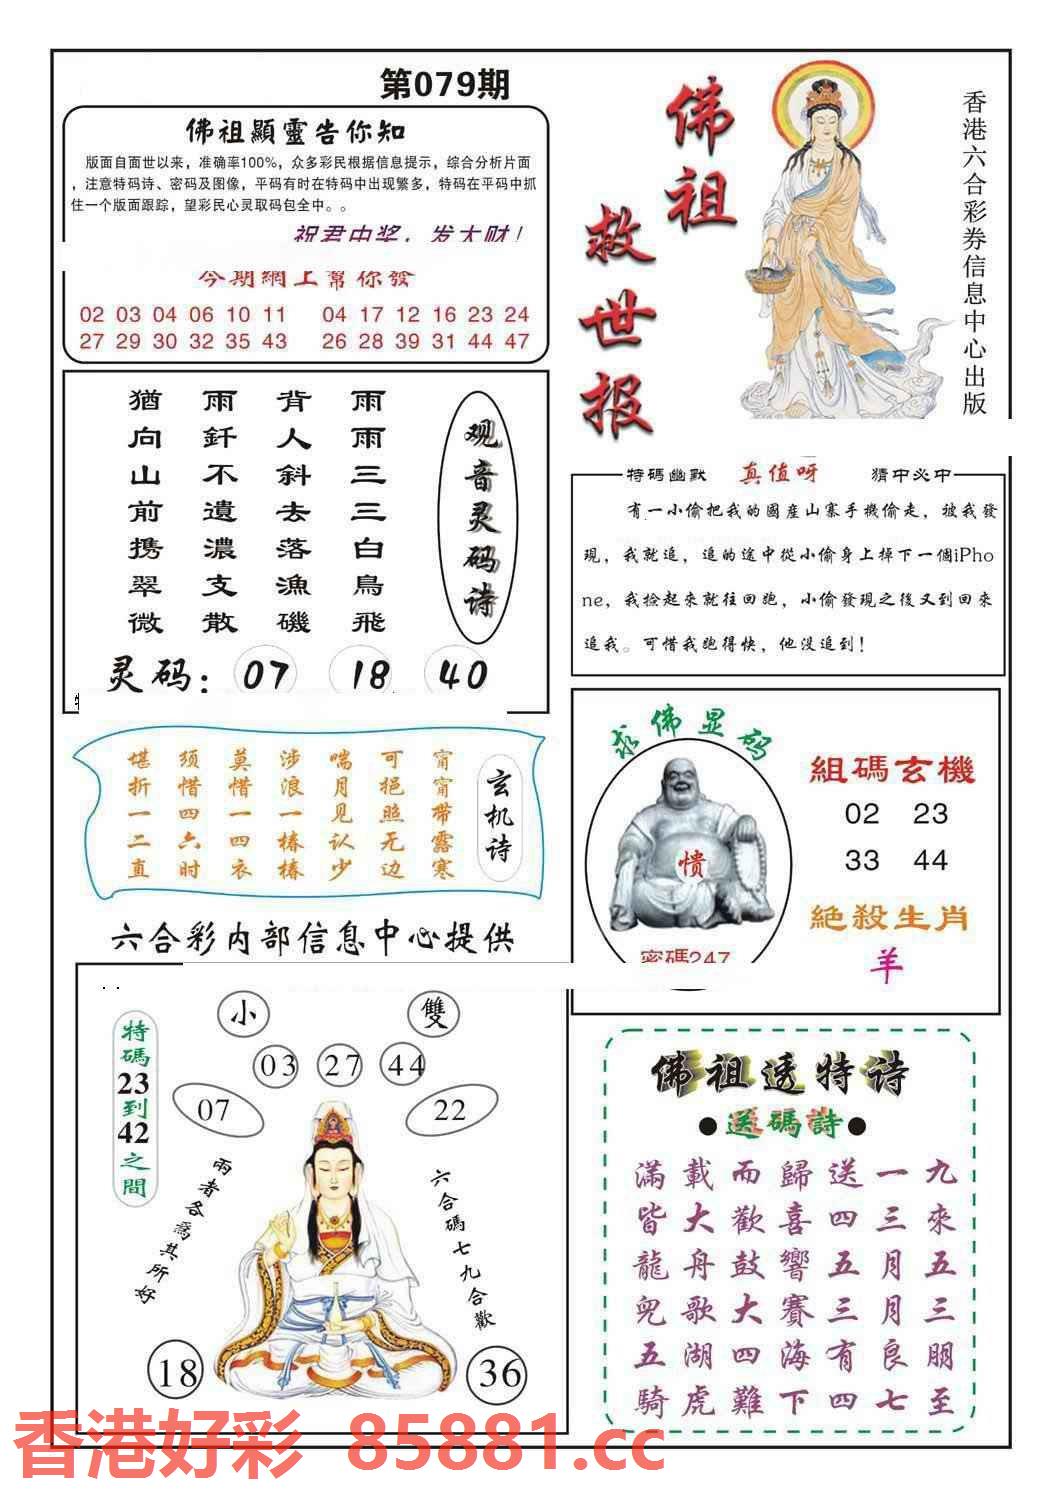 第079期
佛祖顯靈告你知
版面自面世以来，准确率100%，众多彩民根据信息提示，综合分析片面
，注意特码诗、密码及图像，平码有时在特码中出现繁多，特码在平码中抓
住一个版面跟踪，望彩民心灵取码包全中。。
祝君中奖，发大财！
今期網上幫你發
02 03 04 06 10 11 04 17 12 16 23 24
27 29 30 32 35 43 26 28 39 31 44 47
佛祖
救世报
香港六合彩券信息中心出版
观音灵码诗
雨雨三三白鳥飛
背人斜去落漁磯
雨釺不遺濃支散
猶向山前携翠微
灵码：07 18 40
特碼幽默 真值呀 猜中必中
有一小偷把我的國産山寨手機偷走，被我發
現，我就追，追的途中從小偷身上掉下一個iPho
ne，我捡起來就往回跑，小偷發現之後又到回來
追我。可惜我跑得快，他没追到！
玄机诗
甯甯带露寒
可挹照无边
喘月见认少
涉浪一椿椿
莫惜一四衣
须惜四六时
堪折一二直
求佛显码
愦
密碼247
組碼玄機
02 23
33 44
絶殺生肖
羊
六合彩内部信息中心提供
特碼23到42之間
小
雙
03 27 44
07
22
兩者各爲其所好
六合碼七九合歡
18
36
佛祖透特诗
●送碼詩●
滿載而歸送一九
皆大歡喜四三來
龍舟鼓響五月五
兒歌大賽三月三
五湖四海有良朋
騎虎難下四七至
香港好彩 85881.cc